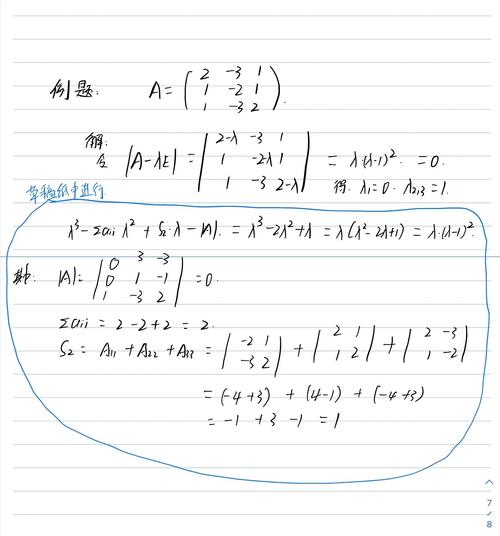 例题: A = ( 2 -3 1
1 -2 1
1 -3 2 ).
解:
令 |A-λE| = | 2-λ -3 1
1 -2-λ 1
1 -3 2-λ | = λ·(λ-1)². = 0.
得. λ₁=0. λ₂,₃=1.
草稿纸中进行
λ³ - Σaii λ² + S₂·λ - |A|. = λ³-2λ²+λ = λ(λ²-2λ+1) = λ·(λ-1)².
|A|= | 0 3 -3
0 1 -1
1 -3 2 | =0.
Σaii = 2-2+2 = 2.
S₂ = A₁₁ + A₂₂ + A₃₃ = | -2 1
-3 2 | + | 2 1
1 2 | + | 2 -3
1 -2 |
= (-4+3) + (4-1) + (-4+3)
= -1 + 3 -1 = 1
7
/
8